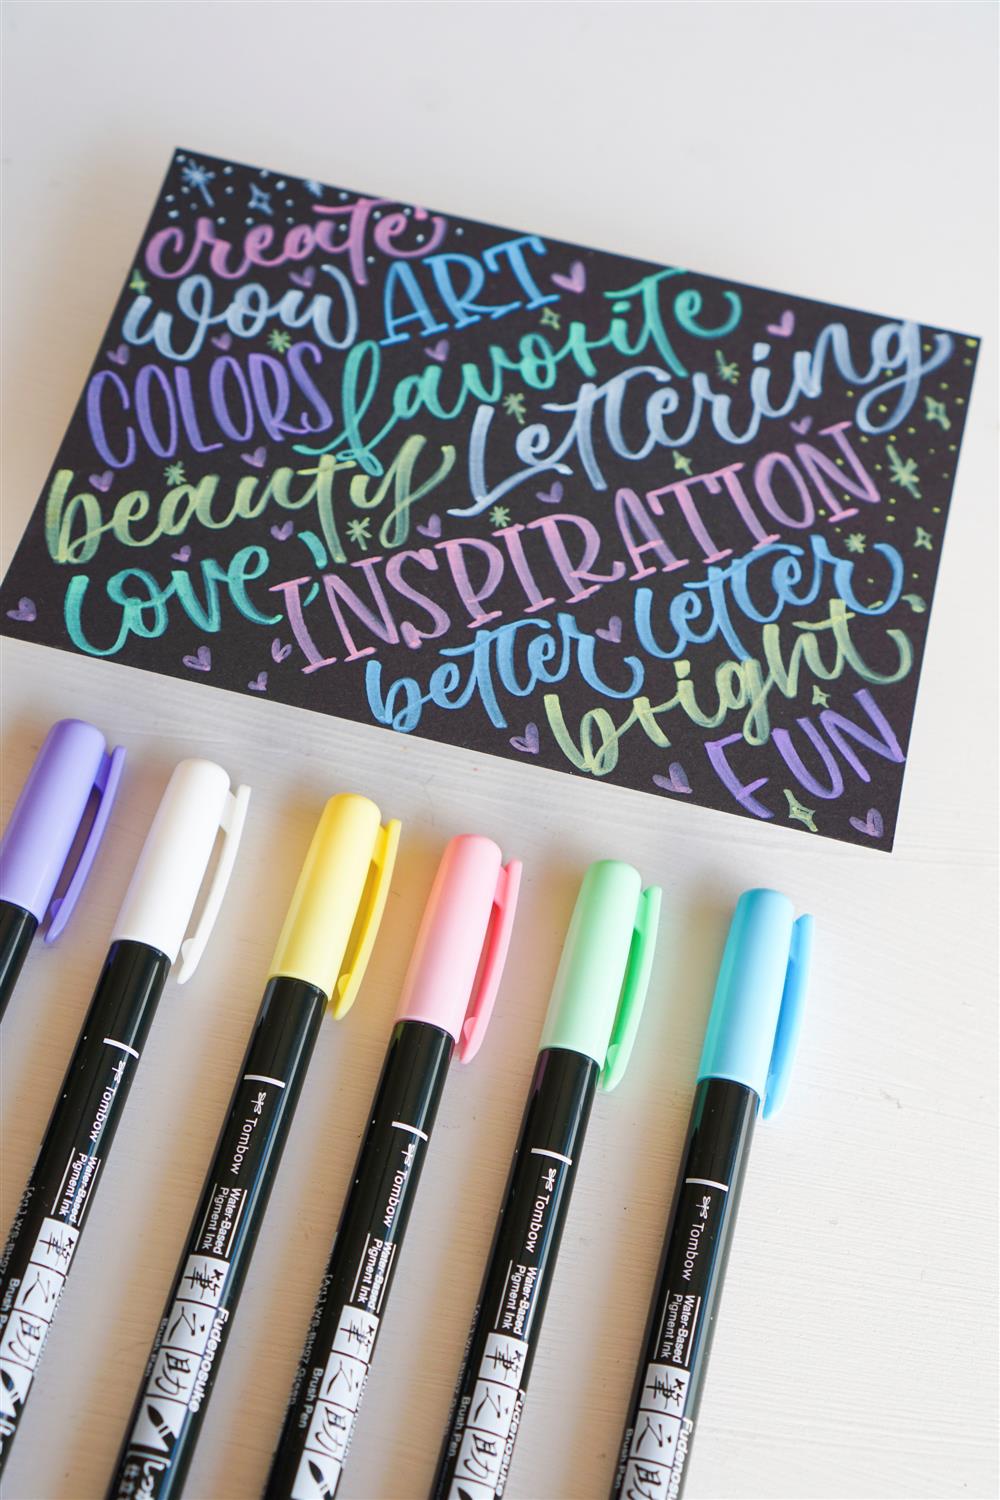 create
wow ART
COLORS favorite
beauty Lettering
Love! INSPIRATION
better letter
bright
FUN
Tombow
Water-Based
Pigment Ink
筆之助
Tombow
Water-Based
Pigment Ink
Fudenosuke
筆之助
Tombow
Water-Based
Pigment Ink
筆之助
Brush Pen
Tombow
Water-Based
Pigment Ink
Fudenosuke
筆之助
Brush Pen
Tombow
Water-Based
Pigment Ink
Fudenosuke
筆之助
Brush Pen